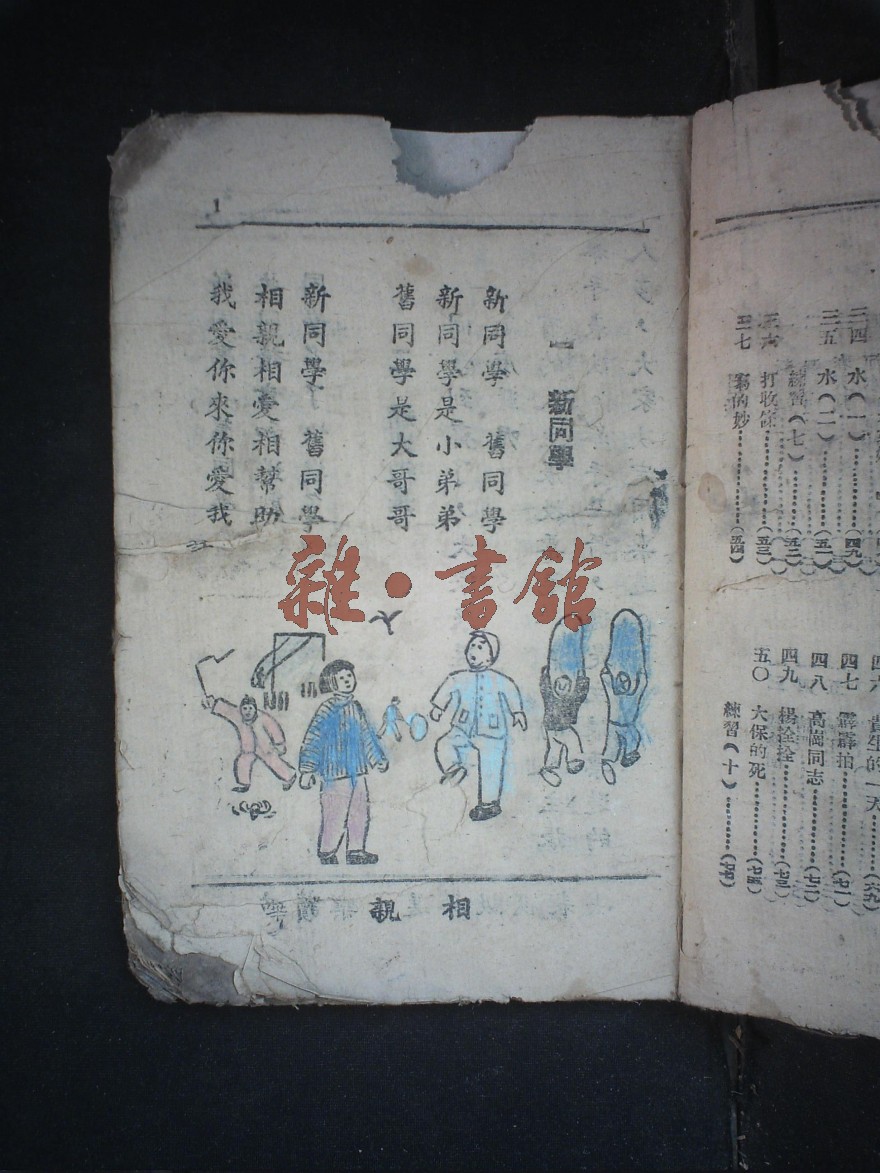 三四 水(一)……(四九)
三五 水(二)……(五一)
練習(七)……(五二)
三六 打收條……(五三)
三七 窮的妙……(五四)
的一天……(六九)
四七 霹靂拍……(七一)
四八 高崗同志……(七二)
四九 楊拴拴……(七三)
五〇 大保的死……(七五)
練習(十)……(七七)
1
一 新同學
新同學 舊同學
新同學是小弟弟
舊同學是大哥哥
新同學 舊同學
相親相愛相幫助
我愛你來你愛我
雜·書館
相 親